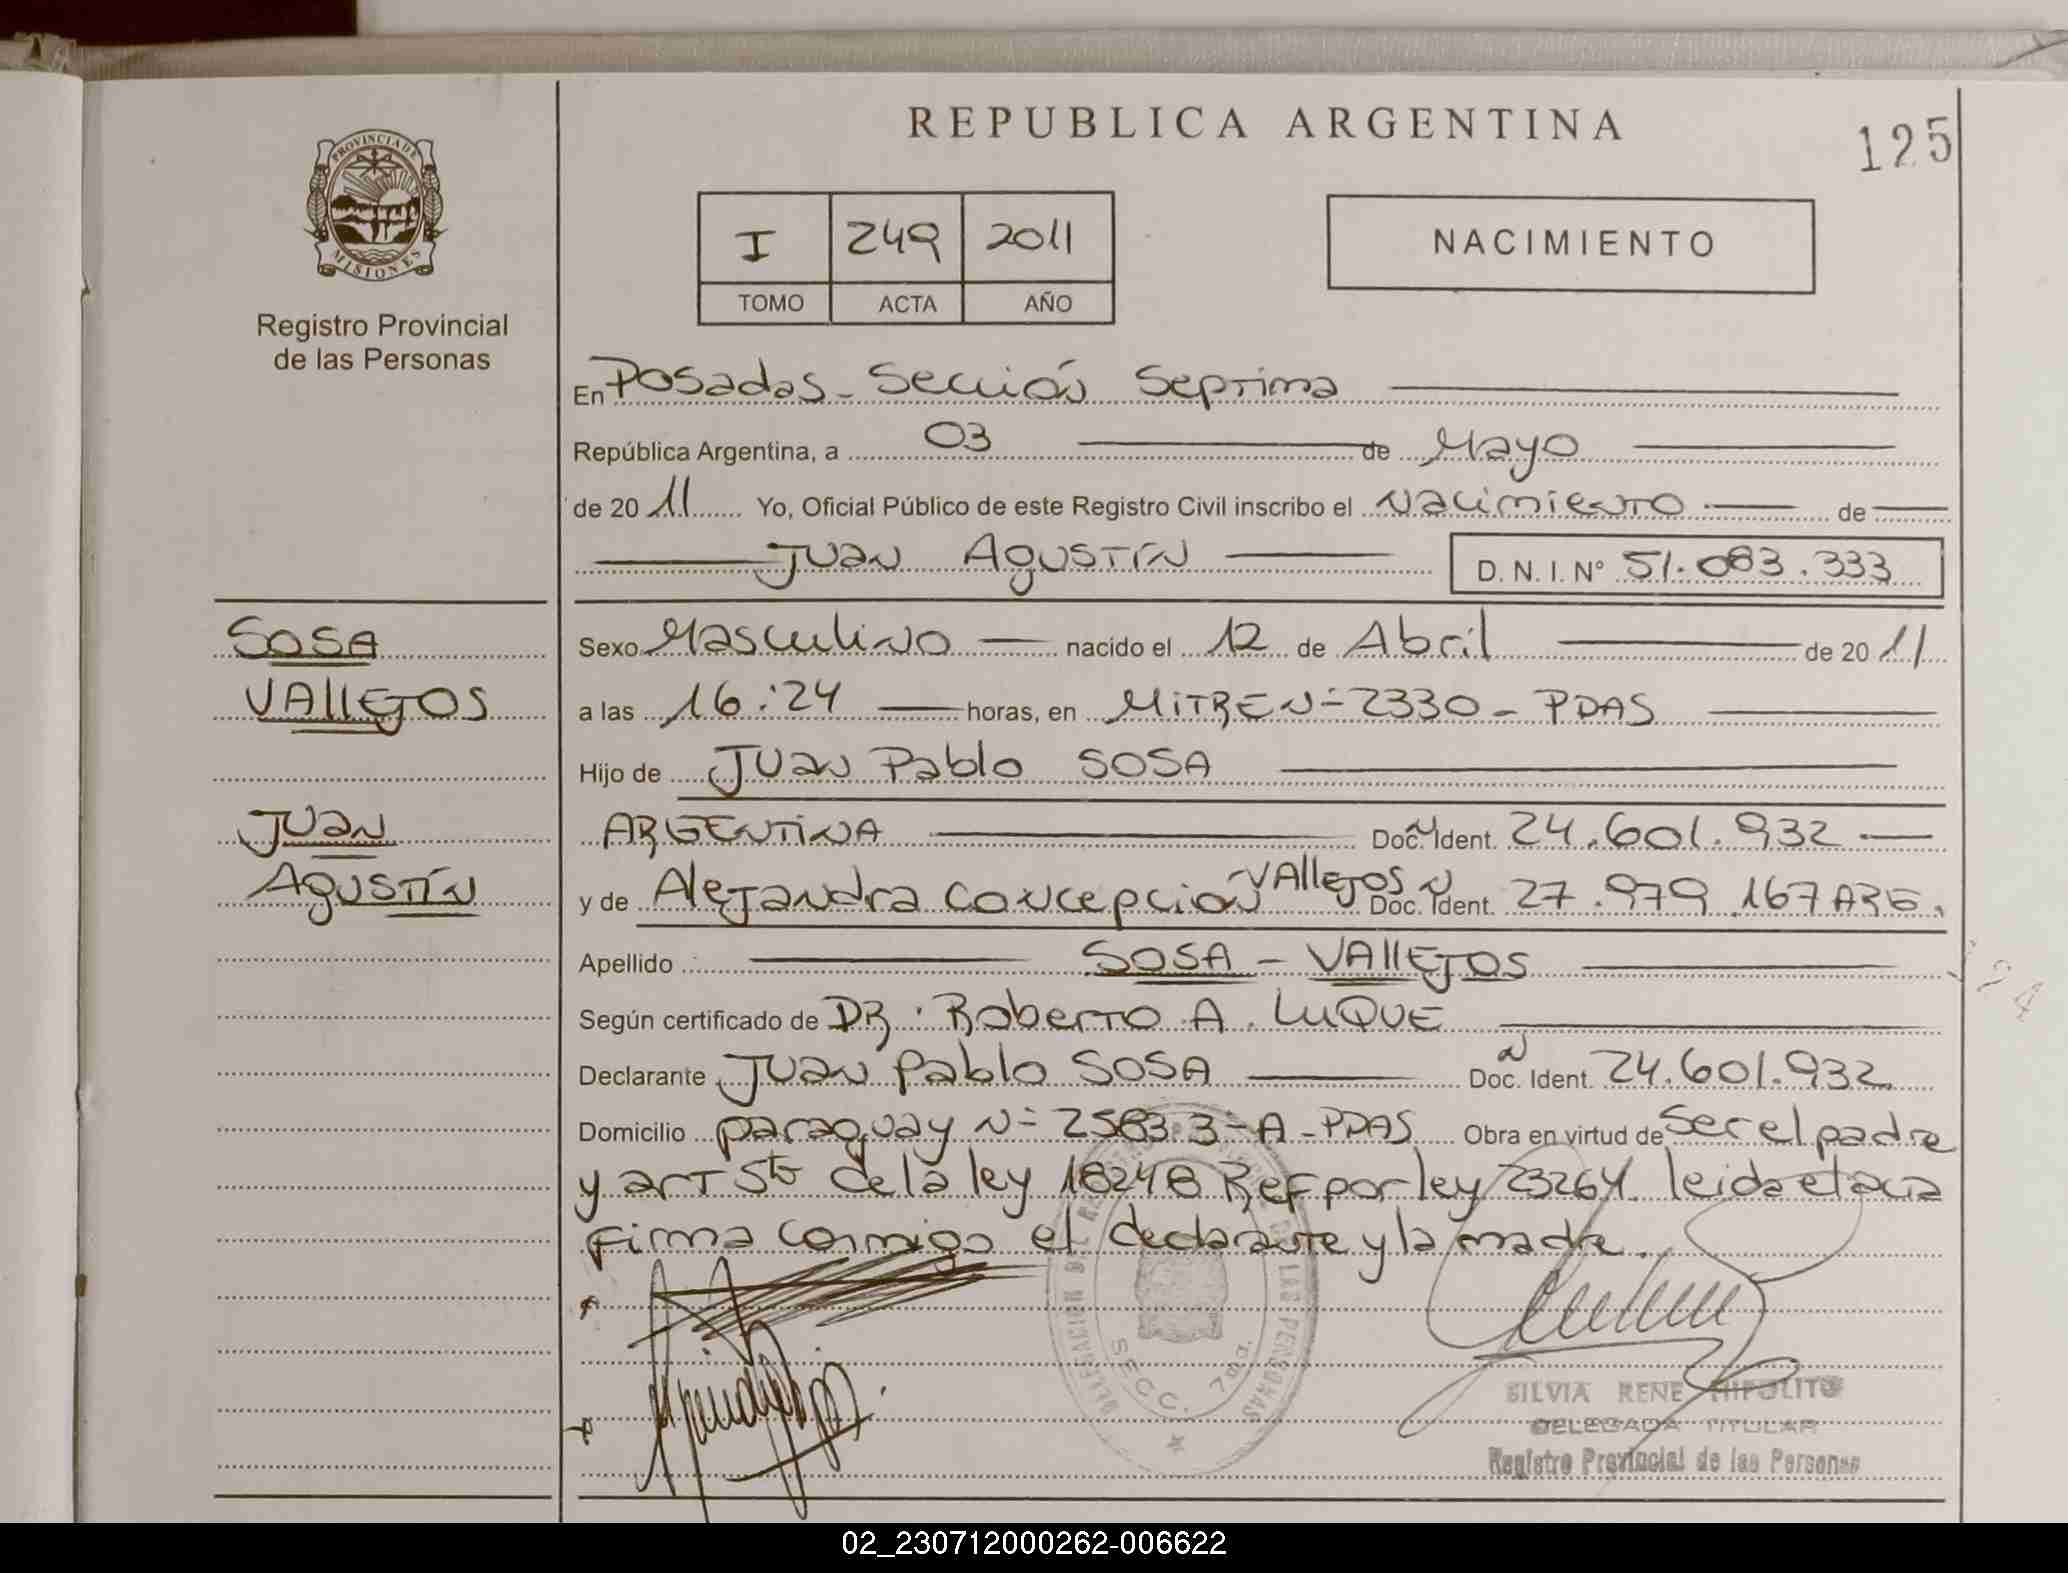 REPUBLICA ARGENTINA
125
PROVINCIA DE
MISIONES
Registro Provincial
de las Personas
I 249 2011
TOMO ACTA AÑO
NACIMIENTO
En Posadas - Sección Septima
República Argentina, a 03 de Mayo
de 20 11 Yo, Oficial Público de este Registro Civil inscribo el Nacimiento de
Juan Agustín D. N. I. Nº 51.083.333
SOSA
VAllEJOS
Juan
Agustín
Sexo Masculino nacido el 12 de Abril de 20 11
a las 16:24 horas, en MITRE N= 2330 - PDAS
Hijo de Juan Pablo SOSA
ARGENTINA Doc. Ident. 24.601.932
y de Alejandra Concepción VAllEJOS Doc. Ident. 27.979.167 ARG.
Apellido SOSA - VAllEJOS
Según certificado de DR. Roberto A. LUQUE
Declarante Juan Pablo SOSA Doc. Ident. 24.601.932
Domicilio paraguay N= 2583 3-A - PDAS Obra en virtud de ser el padre
y art 5to de la ley 18248 Ref por ley 23264. leida el acta
firma conmigo el declarante y la madre.
DELEGACION DEL REGISTRO DE LAS PERSONAS
SECC. 7ma.
SILVIA RENE HIPOLITO
DELEGADA TITULAR
Registro Provincial de las Personas
02_230712000262-006622